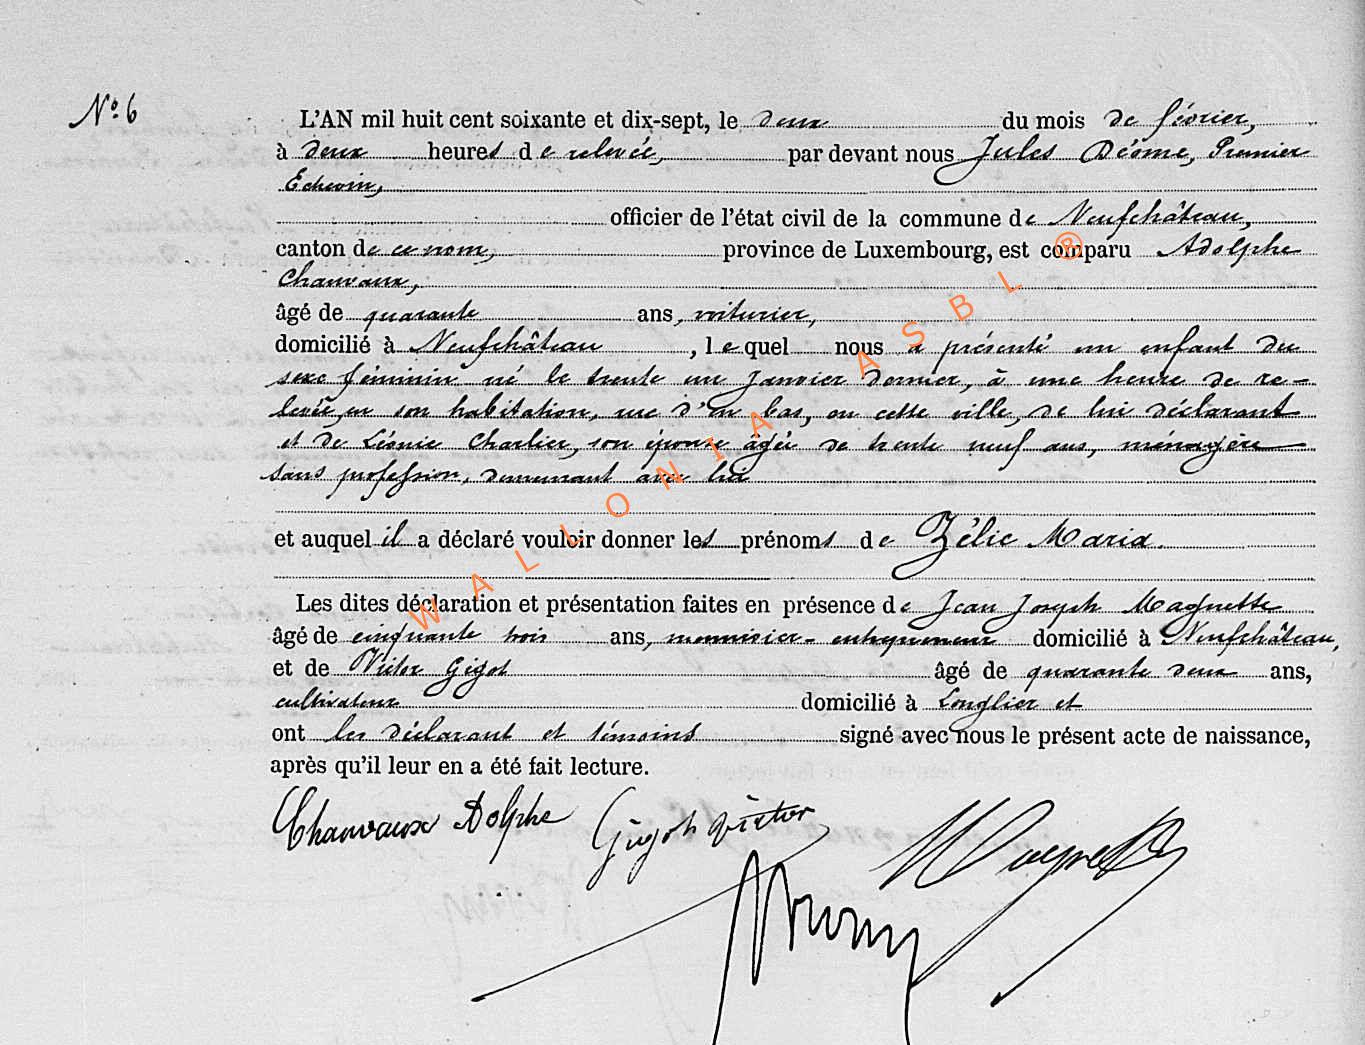 Nº 6
L'AN mil huit cent soixante et dix-sept, le deux du mois de février,
à deux heures de relevée, par devant nous Jules Désome, Premier
Echevin,
officier de l'état civil de la commune de Neufchâteau,
canton de ce nom, province de Luxembourg, est comparu Adolphe
Chauvaux,
âgé de quarante ans, voiturier,
domicilié à Neufchâteau, lequel nous a présenté un enfant du
sexe féminin né le trente un Janvier dernier, à une heure de re-
levée, en son habitation, rue d'en bas, en cette ville, de lui déclarant
et de Léonie Charlier, son épouse âgée de trente neuf ans, ménagère
sans profession, demeurant avec lui
et auquel il a déclaré vouloir donner les prénoms de Zélie Maria.
Les dites déclaration et présentation faites en présence de Jean Joseph Magnette
âgé de cinquante trois ans, menuisier-entrepreneur domicilié à Neufchâteau,
et de Victor Gigot âgé de quarante deux ans,
cultivateur domicilié à Longlier et
ont les déclarant et témoins signé avec nous le présent acte de naissance,
après qu'il leur en a été fait lecture.
Chauvaux Dolphe Gigot victor
WALLONIA ASBL ®